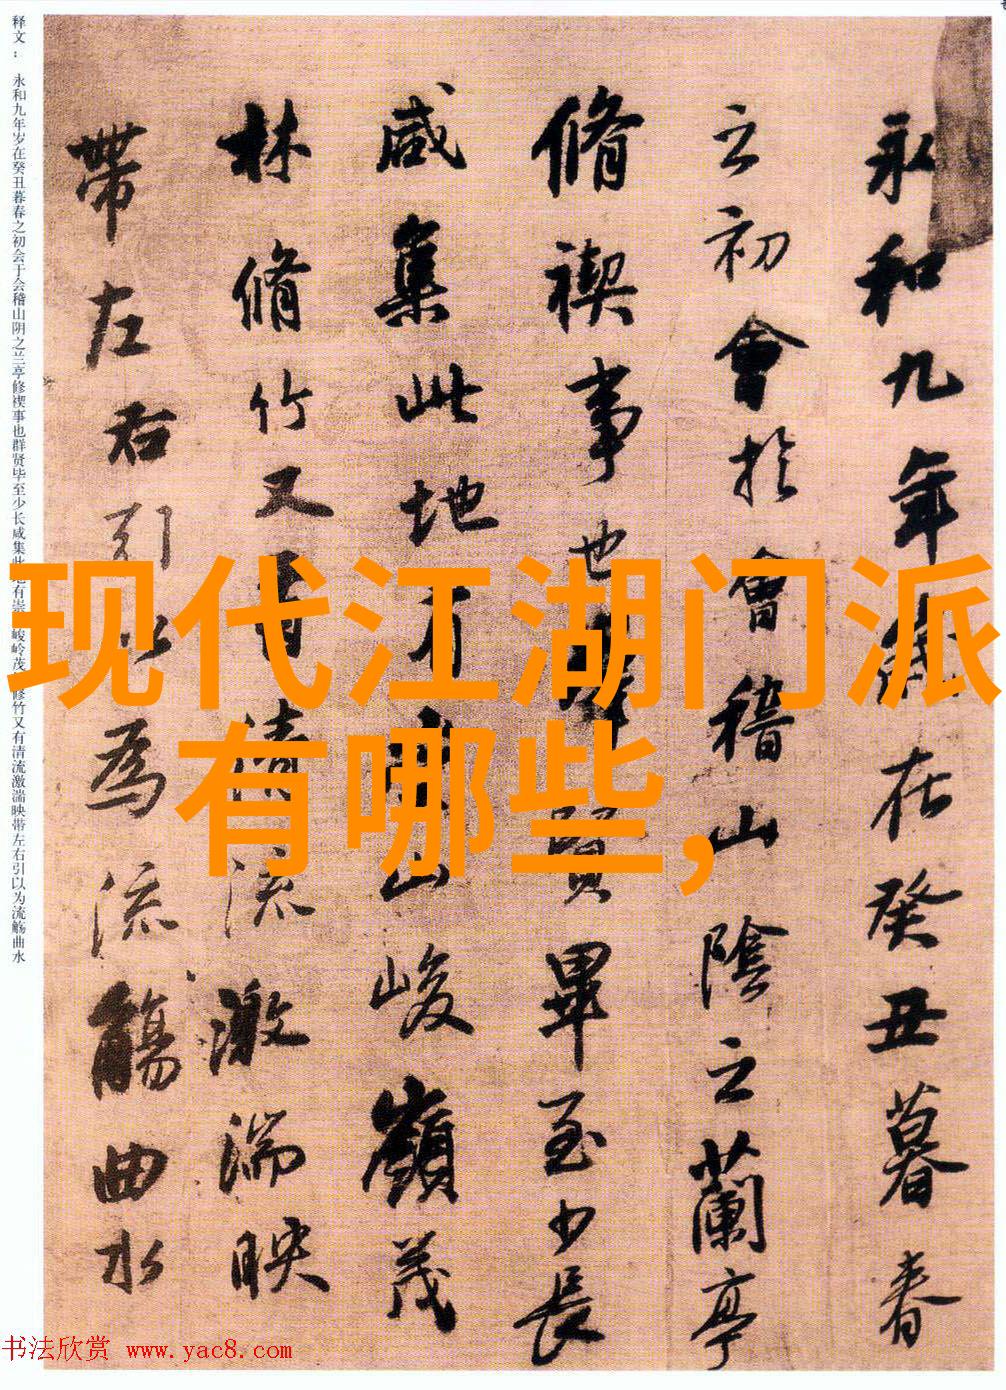 释文： 永和九年岁在癸丑暮春之初会于会稽山阴之兰亭修禊事也群贤毕至少长咸集此地有崇 峻岭茂 修竹又有清流激湍映带左右引以为流觞曲水
永和九年歲在癸丑暮春
之初會於會稽山陰之蘭亭
脩禊事也 賢畢至少長
咸集此地有 山峻嶺茂
林脩竹又有清流激湍映
帶左右引以為流觴曲水
现代江湖门派
有哪些,
书法欣赏 www.yac8.com